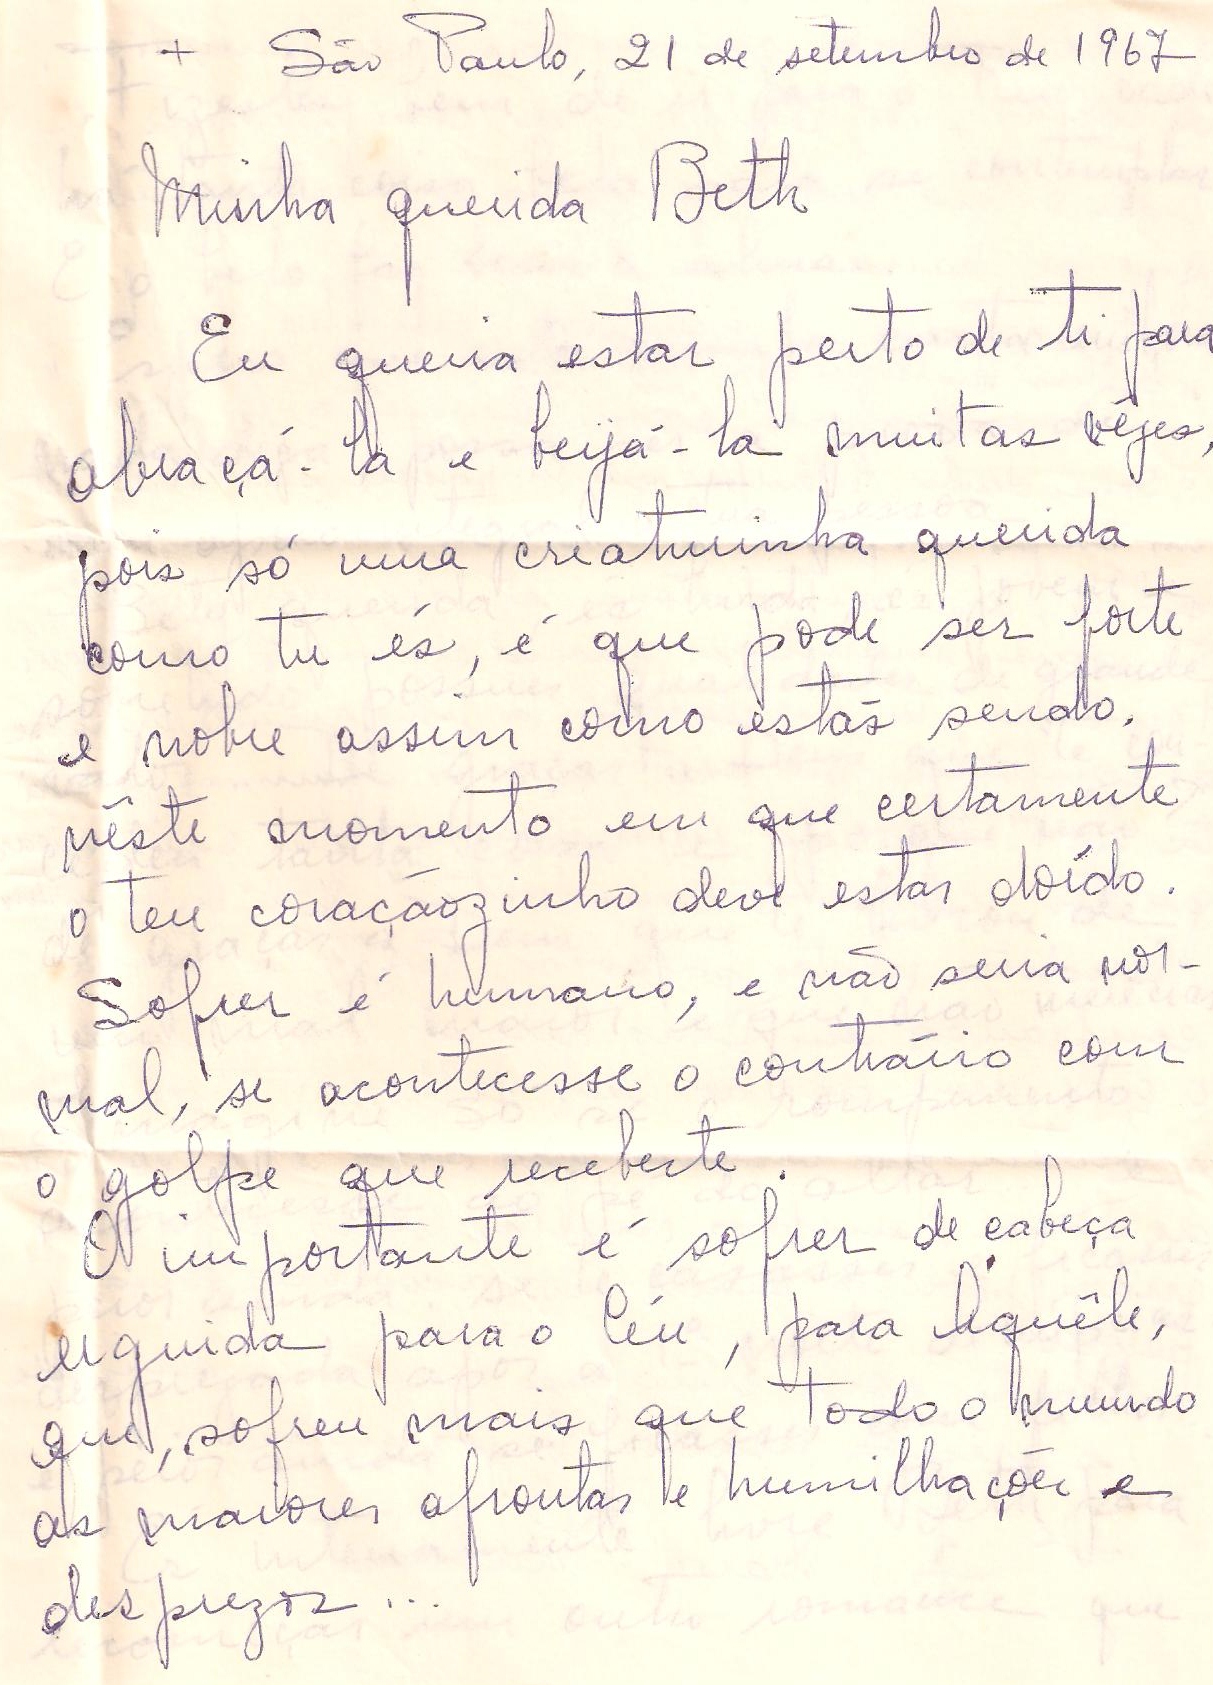 + São Paulo, 21 de setembro de 1967
Minha querida Beth
Eu queria estar perto de ti para
abraçá-la e beijá-la muitas vêzes,
pois só uma criaturinha querida
como tu és, é que pode ser forte
e nobre assim como estás sendo,
nêste momento em que certamente
o teu coraçãozinho deve estar doído.
Sofrer é humano, e não seria nor-
mal, se acontecesse o contrário com
o golpe que recebeste.
O importante é sofrer de cabeça
erguida para o Céu, para Aquêle,
que, sofreu mais que todo o mundo
as maiores afrontas e humilhações e
desprezos...